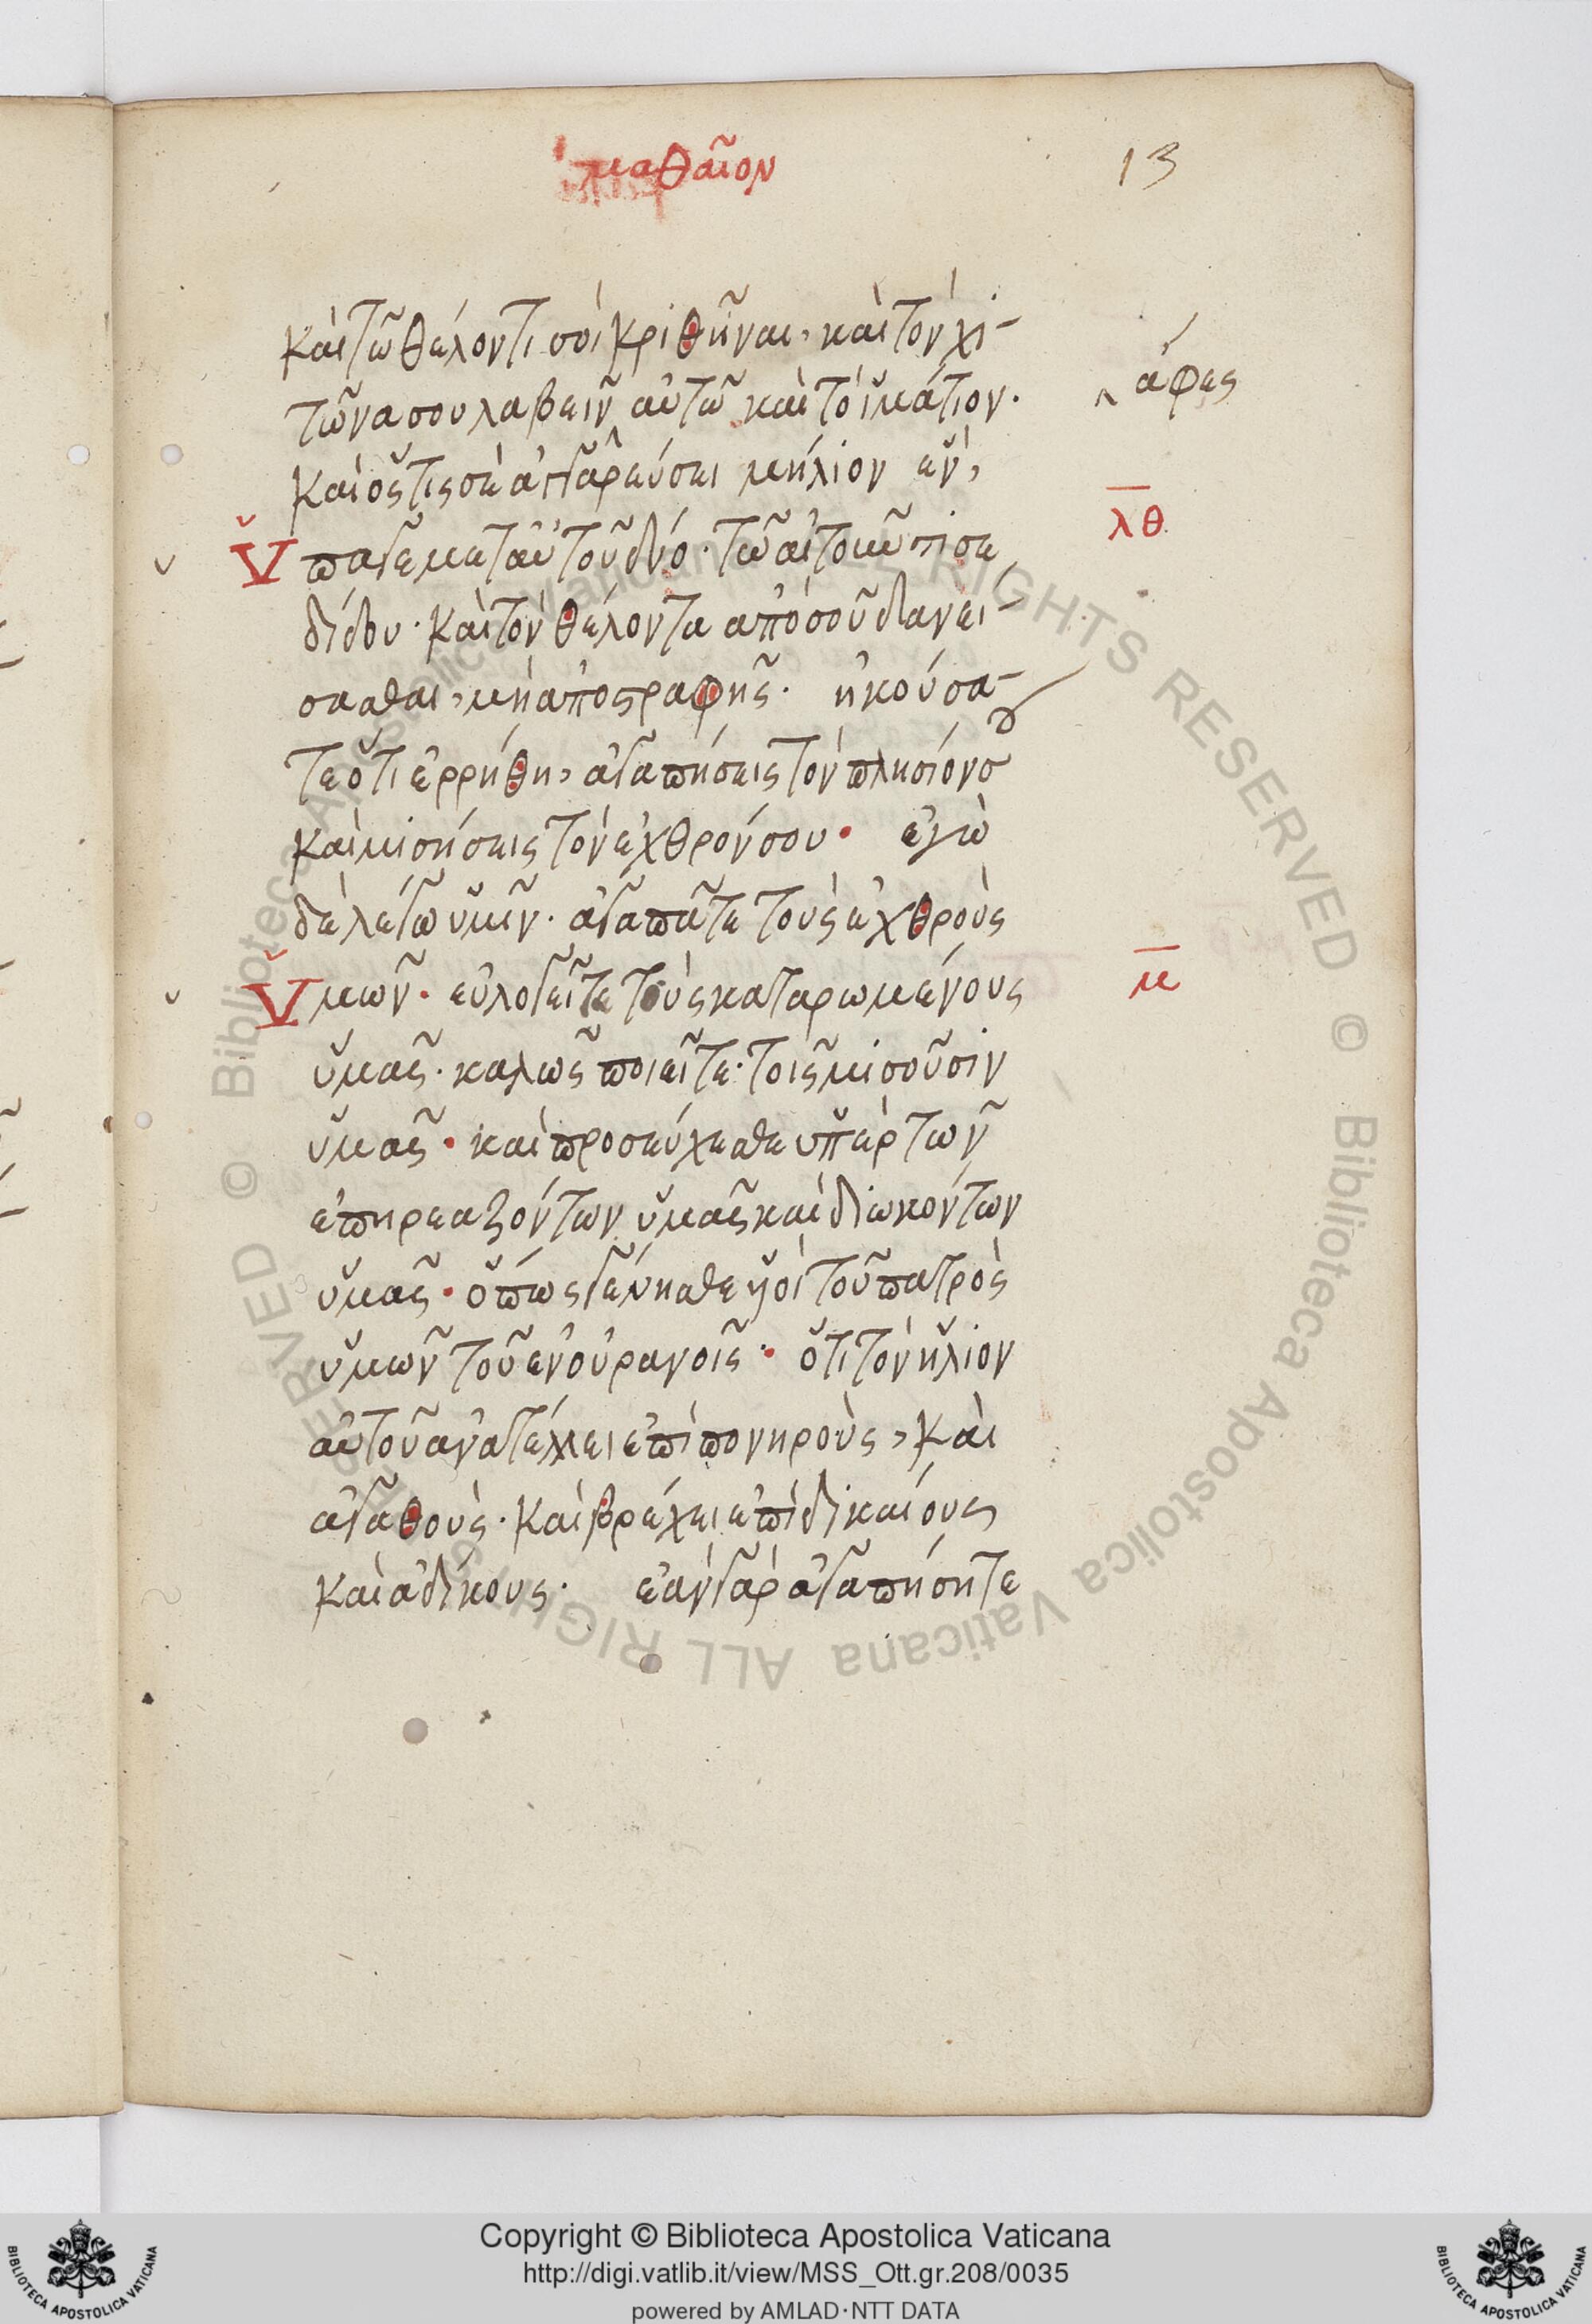 ματθαῖον
13
καὶ τῶ θέλοντι σοὶ κριθῆναι, καὶ τὸν χι-
τῶνα σου λαβεῖν αὐτῶ καὶ τὸ ἱμάτιον.
ἄφες
καὶ ὅς τις σὲ ἀγγαρεύσει μήλιον ἕν,
λθ
ὕπαγε μετ αὐτοῦ δύο. τῶ αἰτοῦντι σε
δίδου. καὶ τὸν θέλοντα ἀπὸ σοῦ δανεί-
σασθαι, μὴ ἀποστραφῆς. ἠκούσα-
τε ὅτι ἐρρήθη, ἀγαπήσεις τὸν πλησίον σου
καὶ μισήσεις τὸν ἐχθρόν σου. ἐγὼ
δὲ λέγω ὑμῖν. ἀγαπᾶτε τοὺς ἐχθροὺς
μ
ὑμῶν. εὐλογεῖτε τοὺς καταρωμένους
ὑμᾶς. καλῶς ποιεῖτε. τοῖς μισοῦσιν
ὑμᾶς. καὶ προσεύχεσθε ὑπὲρ τῶν
ἐπηρεαζόντων ὑμᾶς καὶ διωκόντων
ὑμᾶς. ὅπως γένησθε ὑοὶ τοῦ πατρὸς
ὑμῶν τοῦ ἐν οὐρανοῖς. ὅτι τὸν ἥλιον
αὐτοῦ ἀνατέλλει ἐπὶ πονηροὺς, καὶ
ἀγαθοὺς. καὶ βρέχει ἐπὶ δικαίους
καὶ ἀδίκους. ἐὰν γὰρ ἀγαπήσητε
© Biblioteca Apostolica Vaticana ALL RIGHTS RESERVED © Biblioteca Apostolica Vaticana ALL RIGHTS RESERVED
Copyright © Biblioteca Apostolica Vaticana
http://digi.vatlib.it/view/MSS_Ott.gr.208/0035
powered by AMLAD·NTT DATA
BIBLIOTECA APOSTOLICA VATICANA
BIBLIOTECA APOSTOLICA VATICANA